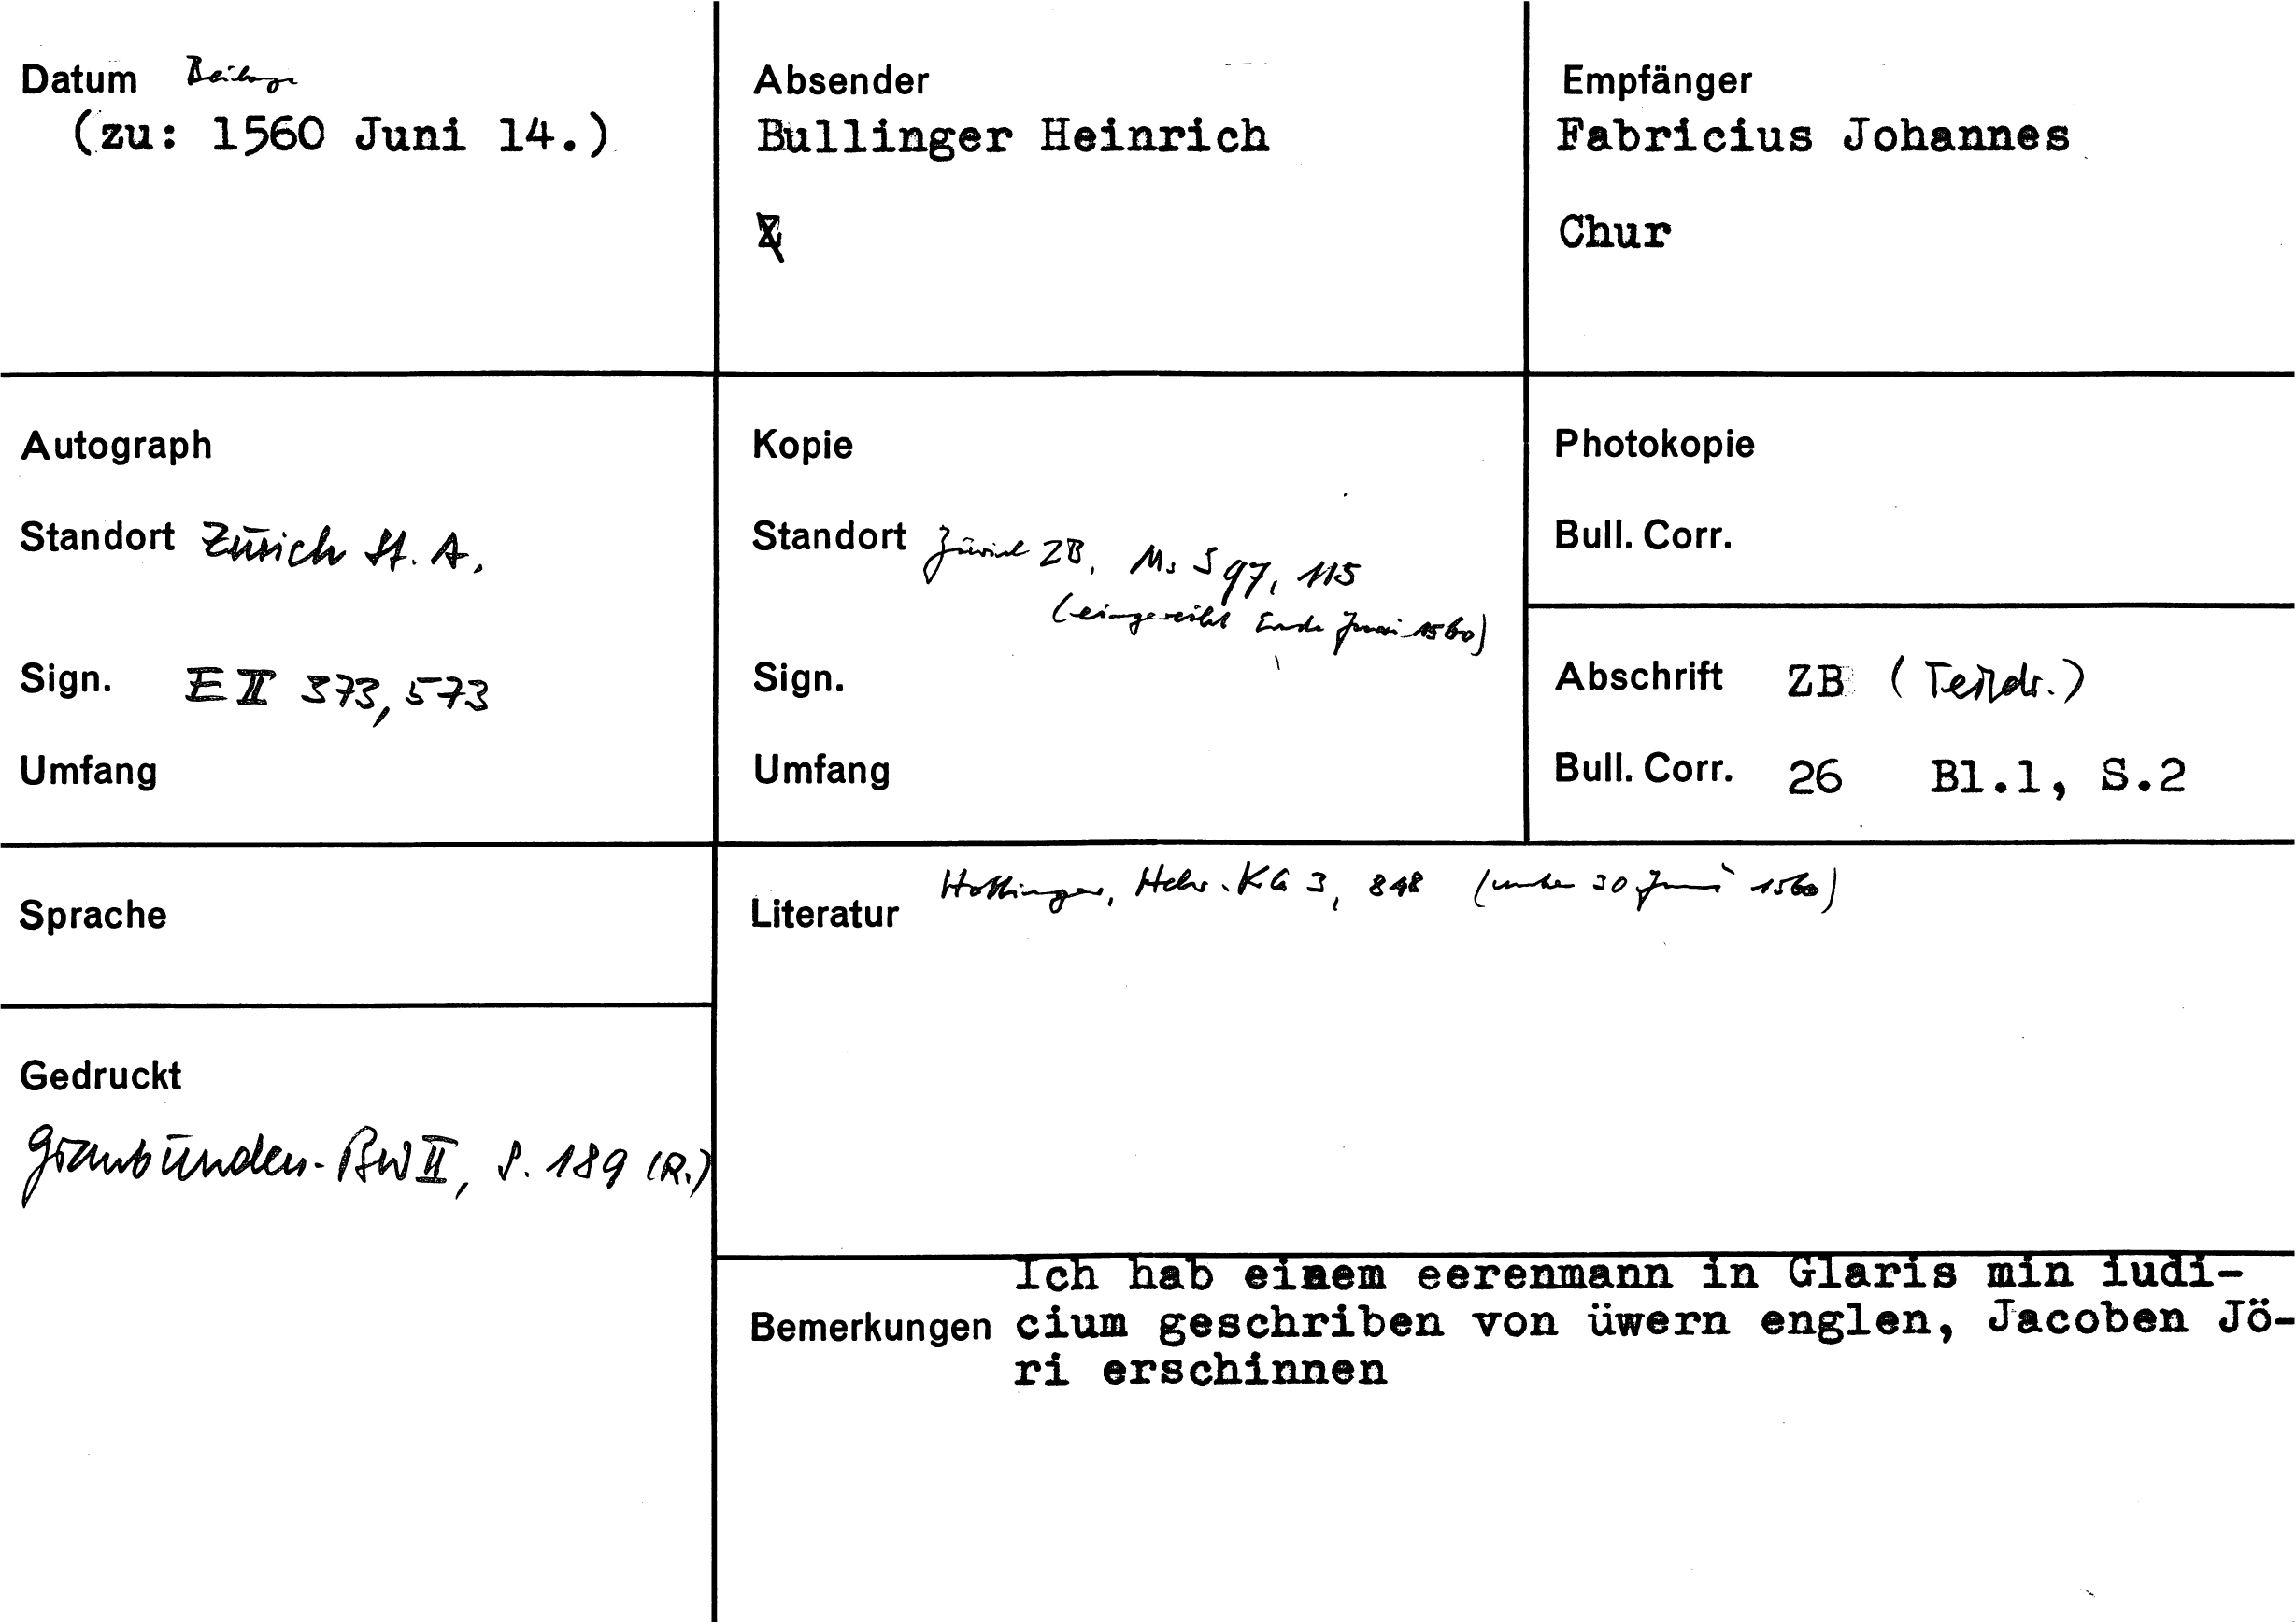 Datum Beilage
(zu: 1560 Juni 14.)
Absender
Bullinger Heinrich
Empfänger
Fabricius Johannes
Chur
Autograph
Standort Zürich St. A.
Sign. E II 373, 573
Umfang
Kopie
Standort Zürich ZB, Ms S 97, 115
(eingereiht Ende Juni 1560)
Sign.
Umfang
Photokopie
Bull. Corr.
Abschrift ZB (Teildr.)
Bull. Corr. 26 Bl.1, S.2
Sprache
Gedruckt
Graubünden-BW II, S. 189 (R.)
Literatur Hottinger, Helv. KG 3, 848 (unter 30 Juni 1560)
Bemerkungen
Ich hab einem eerenmann in Glaris min iudi-
cium geschriben von üwern englen, Jacoben Jö-
ri erschinnen